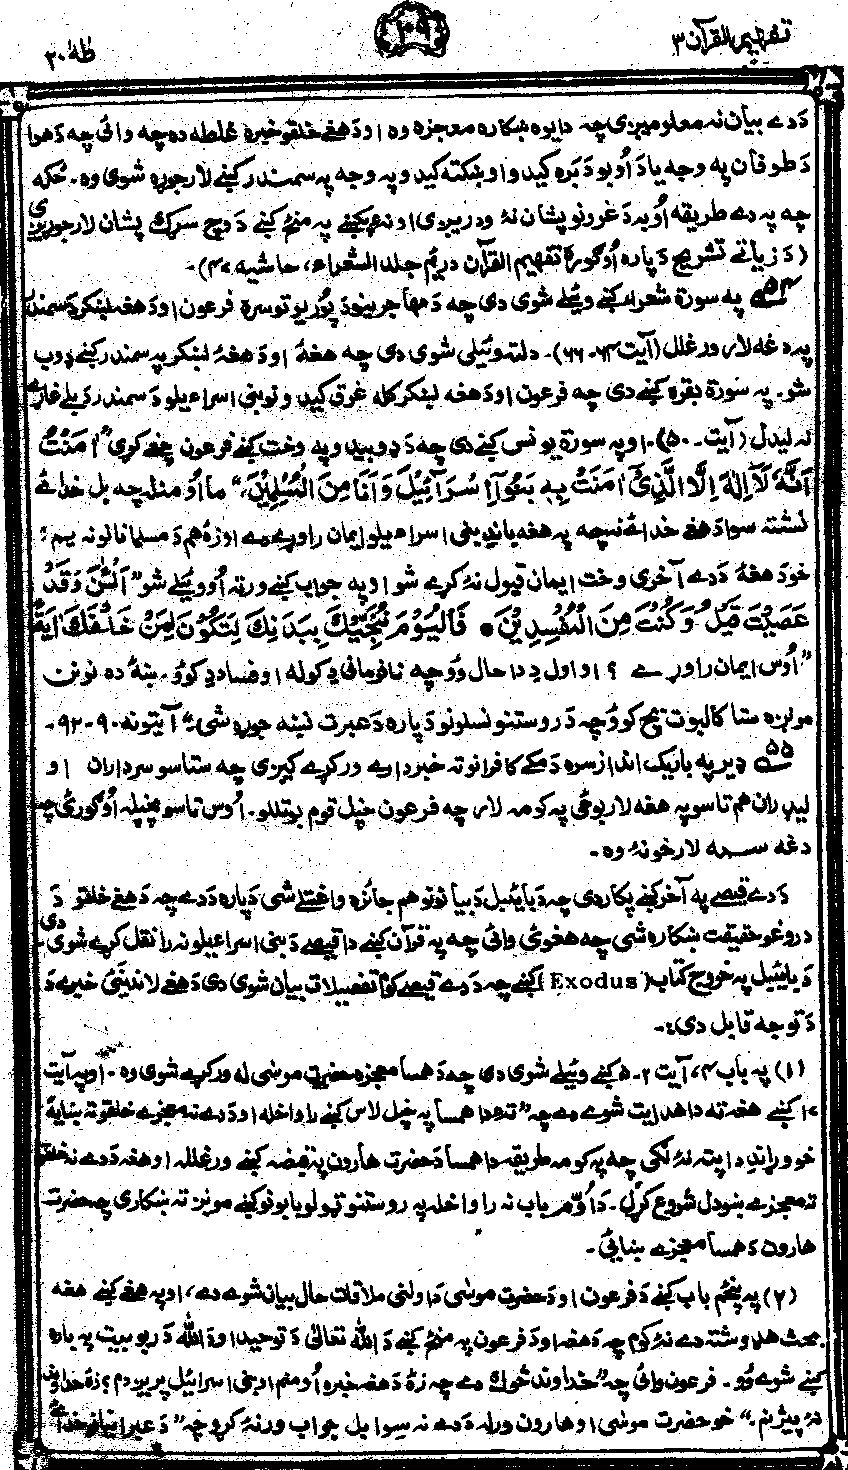 تفهیم القرآن ۳
طٰهٰ ۲۰
دَدے بیان نه معلومیږی چه دا یوه ښکاره معجزه وه اودَ هغے خلقو خبره غلطه ده چه وائی چه دَ هوا
دَ طوفان په وجه یا دَ اُوبو دَ بَره کیدو او ښکته کیدو په وجه په سمندر کښے لار جوړه شوی وه. ځکه
چه په دے طریقه اُوبه دَ غرونو پشان نهٔ ودریږی او نه په مینځ کښے دَ وچ سړک پشان لار جوړیږی
(دَ زیاتے تشریح دَپاره اُوګورئ تفهیم القرآن دریم جلد الشعراء، حاشیه ۴۷).
۵۴ په سورة شعراء کښے وئیلے شوی دی چه دَ مهاجرینو دَ پوریوتو سره فرعون اودَ هغه لښکر دَ سمندر
په دغه لار ورغلل (آیت ۶۴-۶۶). دلته وئیلی شوی دی چه هغهٔ اودَ هغهٔ لښکر په سمندر کښے ډوب
شو. په سورة بقره کښے دی چه فرعون اودَ هغه لښکر کله غرق کیدو نو بنی اسراءیلو دَ سمندر دَ بلے غاړے
نه لیدل (آیت ۵۰). او په سورة یونس کښے دی چه دَ ډوبیدو په وخت کښے فرعون چغے کړی "اٰمَنْتُ
اَنَّهٗ لَآ اِلٰهَ اِلَّا الَّذِیْٓ اٰمَنَتْ بِهٖ بَنُوْٓا اِسْرَآئِیْلَ وَاَنَا مِنَ الْمُسْلِمِیْنَ،" ما اُومنله چه بل خدائے
نشته سوا دَ هغے خدائے نه چه په هغه باندے بنی اسراءیلو ایمان راوړے دے او زهٔ هم دَ مسلمانانو نه یم؛
خو دَ هغهٔ دَدے آخری وخت ایمان قبول نهٔ کړے شو او په جواب کښے ورته اُووئیلے شو "آلْئٰنَ وَقَدْ
عَصَیْتَ قَبْلُ وَکُنْتَ مِنَ الْمُفْسِدِیْنَ • فَالْیَوْمَ نُنَجِّیْکَ بِبَدَنِکَ لِتَکُوْنَ لِمَنْ خَلْفَکَ اٰیَةً
"اُوس ایمان راوړے ؟ او اول دِ دا حال وُو چه نافرمانی دِ کوله او فساد دِ کوو. ښهٔ ده نو نن
مونږه ستا کالبوت بچ کوو چه دَ روستنو نسلونو دَپاره دَ عبرت نښه جوړه شی." آیتونه ۹۰-۹۲.
۵۵ ډیر په باریک انداز سره دَ مکے کافرانو ته خبردارے ورکړے کیږی چه ستاسو سرداران او
لیډران هم تاسو په هغه لار بوځی په کومه لار چه فرعون خپل قوم بوتللو. اُوس تاسو پخپله اُوګورئ چه
دغه سمه لار خو نهٔ وه.
دَدے قصے په آخر کښے پکار دی چه دَ بائیبل دَ بیانونو هم جائزه واخستلے شی دَپاره دَدے چه دَ هغے خلقو دَ
دروغو حقیقت ښکاره شی چه هغوئ وائی چه په قرآن کښے دا قصے دَ بنی اسراءیلو نه رانقل کړے شوی دی
دَ بائیبل په خروج کتاب (Exodus) کښے چه دَدے قصے کوم تفصیلات بیان شوی دی دَ هغے لاندینئ خبرے دَ
دَ توجه قابل دی:-
(۱) په باب ۴، آیت ۲-۵ کښے وئیلے شوی دی چه دَ همسا معجزه حضرت موسٰی له ورکړے شوی وه. او په آیت
۱۷ کښے هغه ته دا هدایت شوے دے چه "ته دا همسا په خپل لاس کښے راواخله اودَدے نه معجزے خلقو ته ښایه"
خو وړاندے دا پته نهٔ لګی چه په کومه طریقه دا همسا دَ حضرت هارون په قبضه کښے ورغلله او هغه دَدے نه خلقو
ته معجزے ښودل شروع کړل. دَ اُووم باب نه راواخله په روستنو ټولو بابونو کښے مونږ ته ښکاری چه حضرت
هارون دَ همسا معجزے ښائی.
(۲) په پنځم باب کښے دَ فرعون اودَ حضرت موسٰی دَ اولنی ملاقات حال بیان شوے دے، او په هغے کښے هغه
بحث هډو شته دے نهٔ کوم چه دَ هغه اودَ فرعون په مینځ کښے دَ اللّٰه تعالٰی دَ توحید اودَ اللّٰه دَ ربوبیت په باره
کښے شوے وُو. فرعون وائی چه "خداوند څوک دے چه زهٔ دَ هغه خبره اُومنم او بنی اسرائیل پریږدم؟ زهٔ خداوند
نهٔ پیژنم." خو حضرت موسٰی او هارون ورله دَدے نه سوا بل جواب ورنهٔ کړو چه "دَ عبرانیانو خدائے